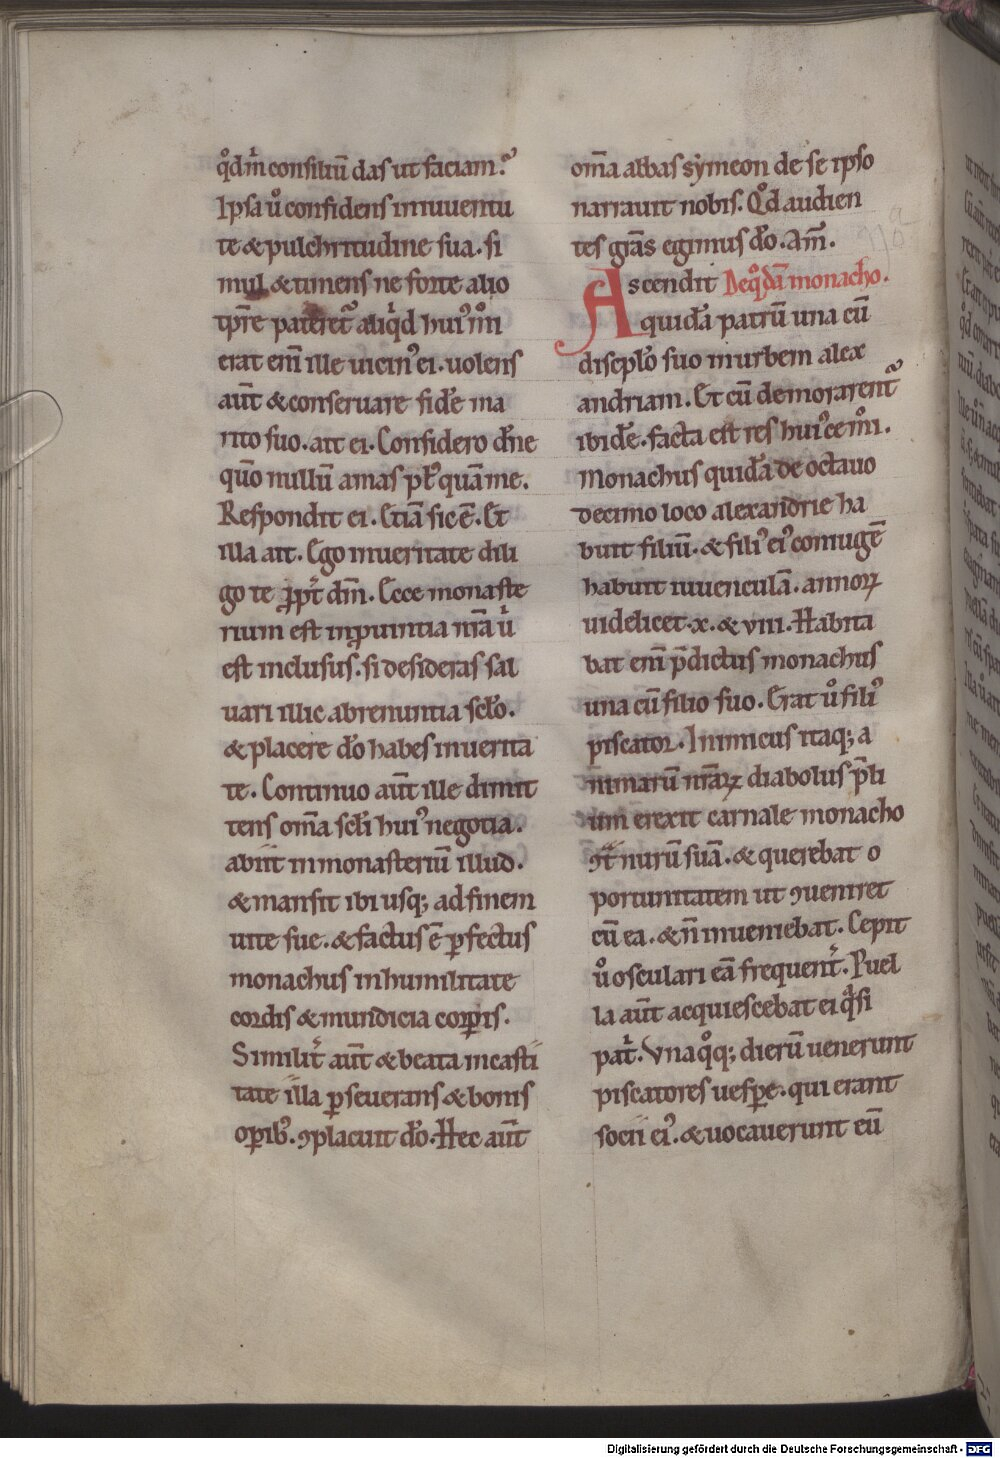 qͦdm̄ consiliū das ut faciam?
Ipsa uͦ confidens iniuuentu
te & pulchritudine sua. si
mul & timens ne forte alio
tp̄re pateret᷑ aliqͥd huiꝰmͦi
erat eni̅ ille uicinꝰ ei. uolens
aūt & conseruare fidē ma
rito suo. ait ei. Confidero dn̄e
quō nullū amas pl̄ꝰ quā me.
Respondit ei. Etiā sic ē. Et
illa ait. Ego inueritate dili
go te ꝓpt̄ dm̄. Ecce monaste
rium est inꝓuintia nr̄a uͥ
est inclusus. si desideras sal
uari illic abrenuntia sclo̅.
& placere dō habes inuerita
te. Continuo aūt ille dimit
tens om̄a scli̅ huiꝰ negotia.
abiit in monasteriū illud.
& mansit ibi usq; ad finem
uite sue. & factus ē ꝑfectus
monachus in humilitate
cordis & mundicia corꝑis.
Similit̄ aūt & beata incasti
tate illa ꝑseuerans & bonis
oꝑibꝰ. ꝯplacuit dō. Hec aūt
om̄a abbas symeon de se ipso
narrauit nobis. Qd̄ audien
tes gr̄as egimus dō. am̄.
Ascendit De qͦdā monacho.
quidā patrū una cū
discplō suo in urbem alex
andriam. Et cū demorarent᷑
ibidē. facta est res huiꝰcemͦi.
Monachus quidā de octauo
decimo loco alexandrie ha
buit filiū. & filiꝰ eiꝰ coniugē
habuit iuuenculā. annoꝝ
uidelicet .x. & viii. Habita
bat eni̅ p̄dictus monachus
una cū filio suo. Erat uͦ filiꝰ
piscator. Inimicus itaq; a
nimarū nr̄aꝝ diabolus p̄li
um erexit carnale monacho
ꝯt̄ nurū suā. & querebat o
portunitatem ut ꝯueniret
cū ea. & n̄ inueniebat. Cepit
uͦ osculari eā frequent̄. Puel
la aūt acquiescebat ei qͣsi
pat̄. Una qͦq; dierū uenerunt
piscatores uesꝑe. qui erant
socii eiꝰ. & uocauerunt eū
Digitalisierung gefördert durch die Deutsche Forschungsgemeinschaft - DFG